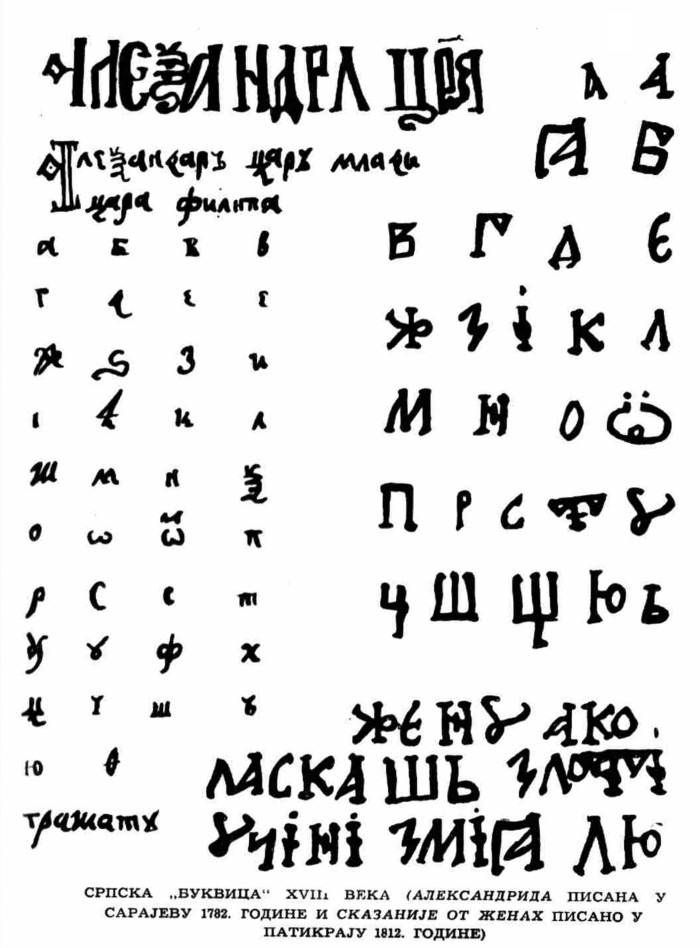 Алеѯандра Цр҃я
Алеѯандаръ царъ млади
цара филипа
а б в в
г д е є
ж ѕ з и
і ꙉ к л
ш м н ѯ
о ѡ ѿ п
р С с т
ꙋ ф х
ц ч ш ъ
ю ѳ
тражатꙋ
А А
А Б
В Г Д Є
Ж З І К Л
М Н О
П Р С Т Ꙋ
Ч Ш Щ Ю Ь
ЖЄНꙊ АКО
ЛАСКАШЬ
ꙊЧІНІ ЛЮ
СРПСКА „БУКВИЦА“ XVIII ВЕКА (АЛЕКСАНДРИДА ПИСАНА У
САРАЈЕВУ 1782. ГОДИНЕ И СКАЗАНИЈЕ ОТ ЖЕНАХ ПИСАНО У
ПАТИКРАЈУ 1812. ГОДИНЕ)